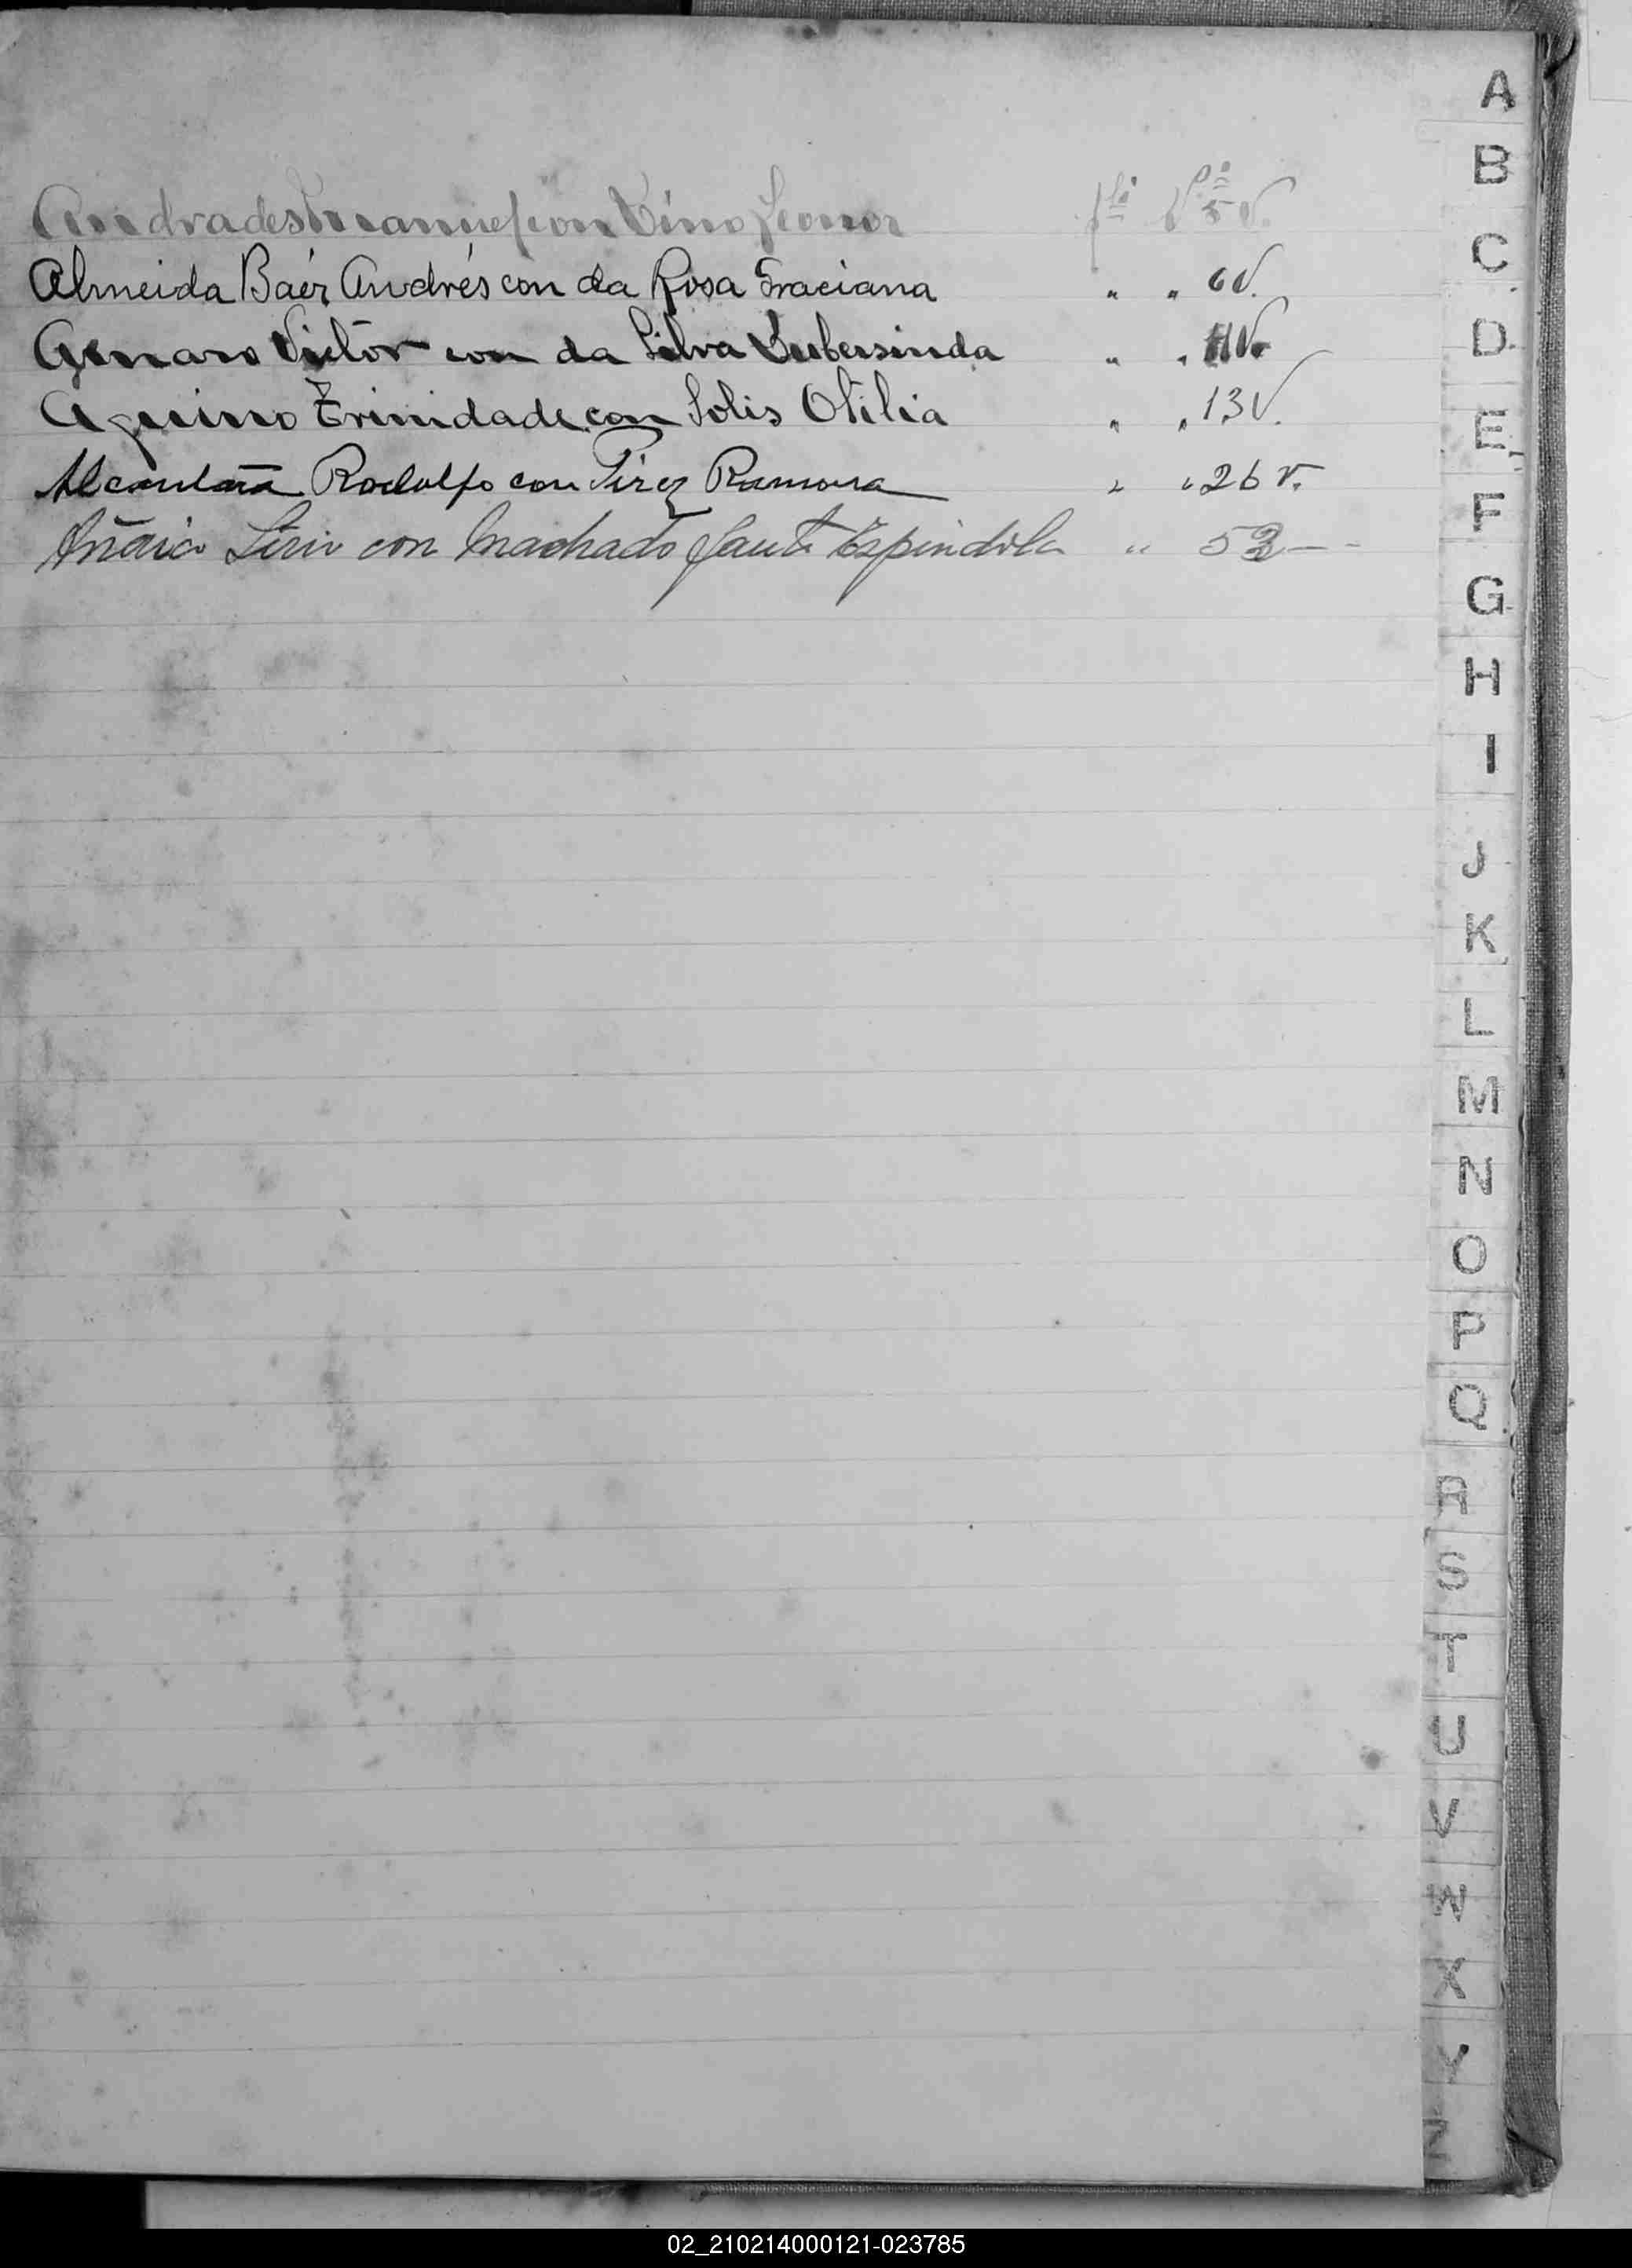 Andrades Manuel con Lino Leonor 5 V.
Almeida Baéz Andrés con da Rosa Graciana " " 6V.
Genaro Victor con da Silva Gubersinda " " 11V.
Aquino Trinidade con Solis Otilia " " 13V.
Alcantara Rodolfo con Pirez Ramona " " 26 v.
con Machado Espindola " 53 - -
A
B
C
D
E
F
G
H
I
J
K
L
M
N
O
P
Q
R
S
T
U
V
W
X
Y
Z
02_210214000121-023785